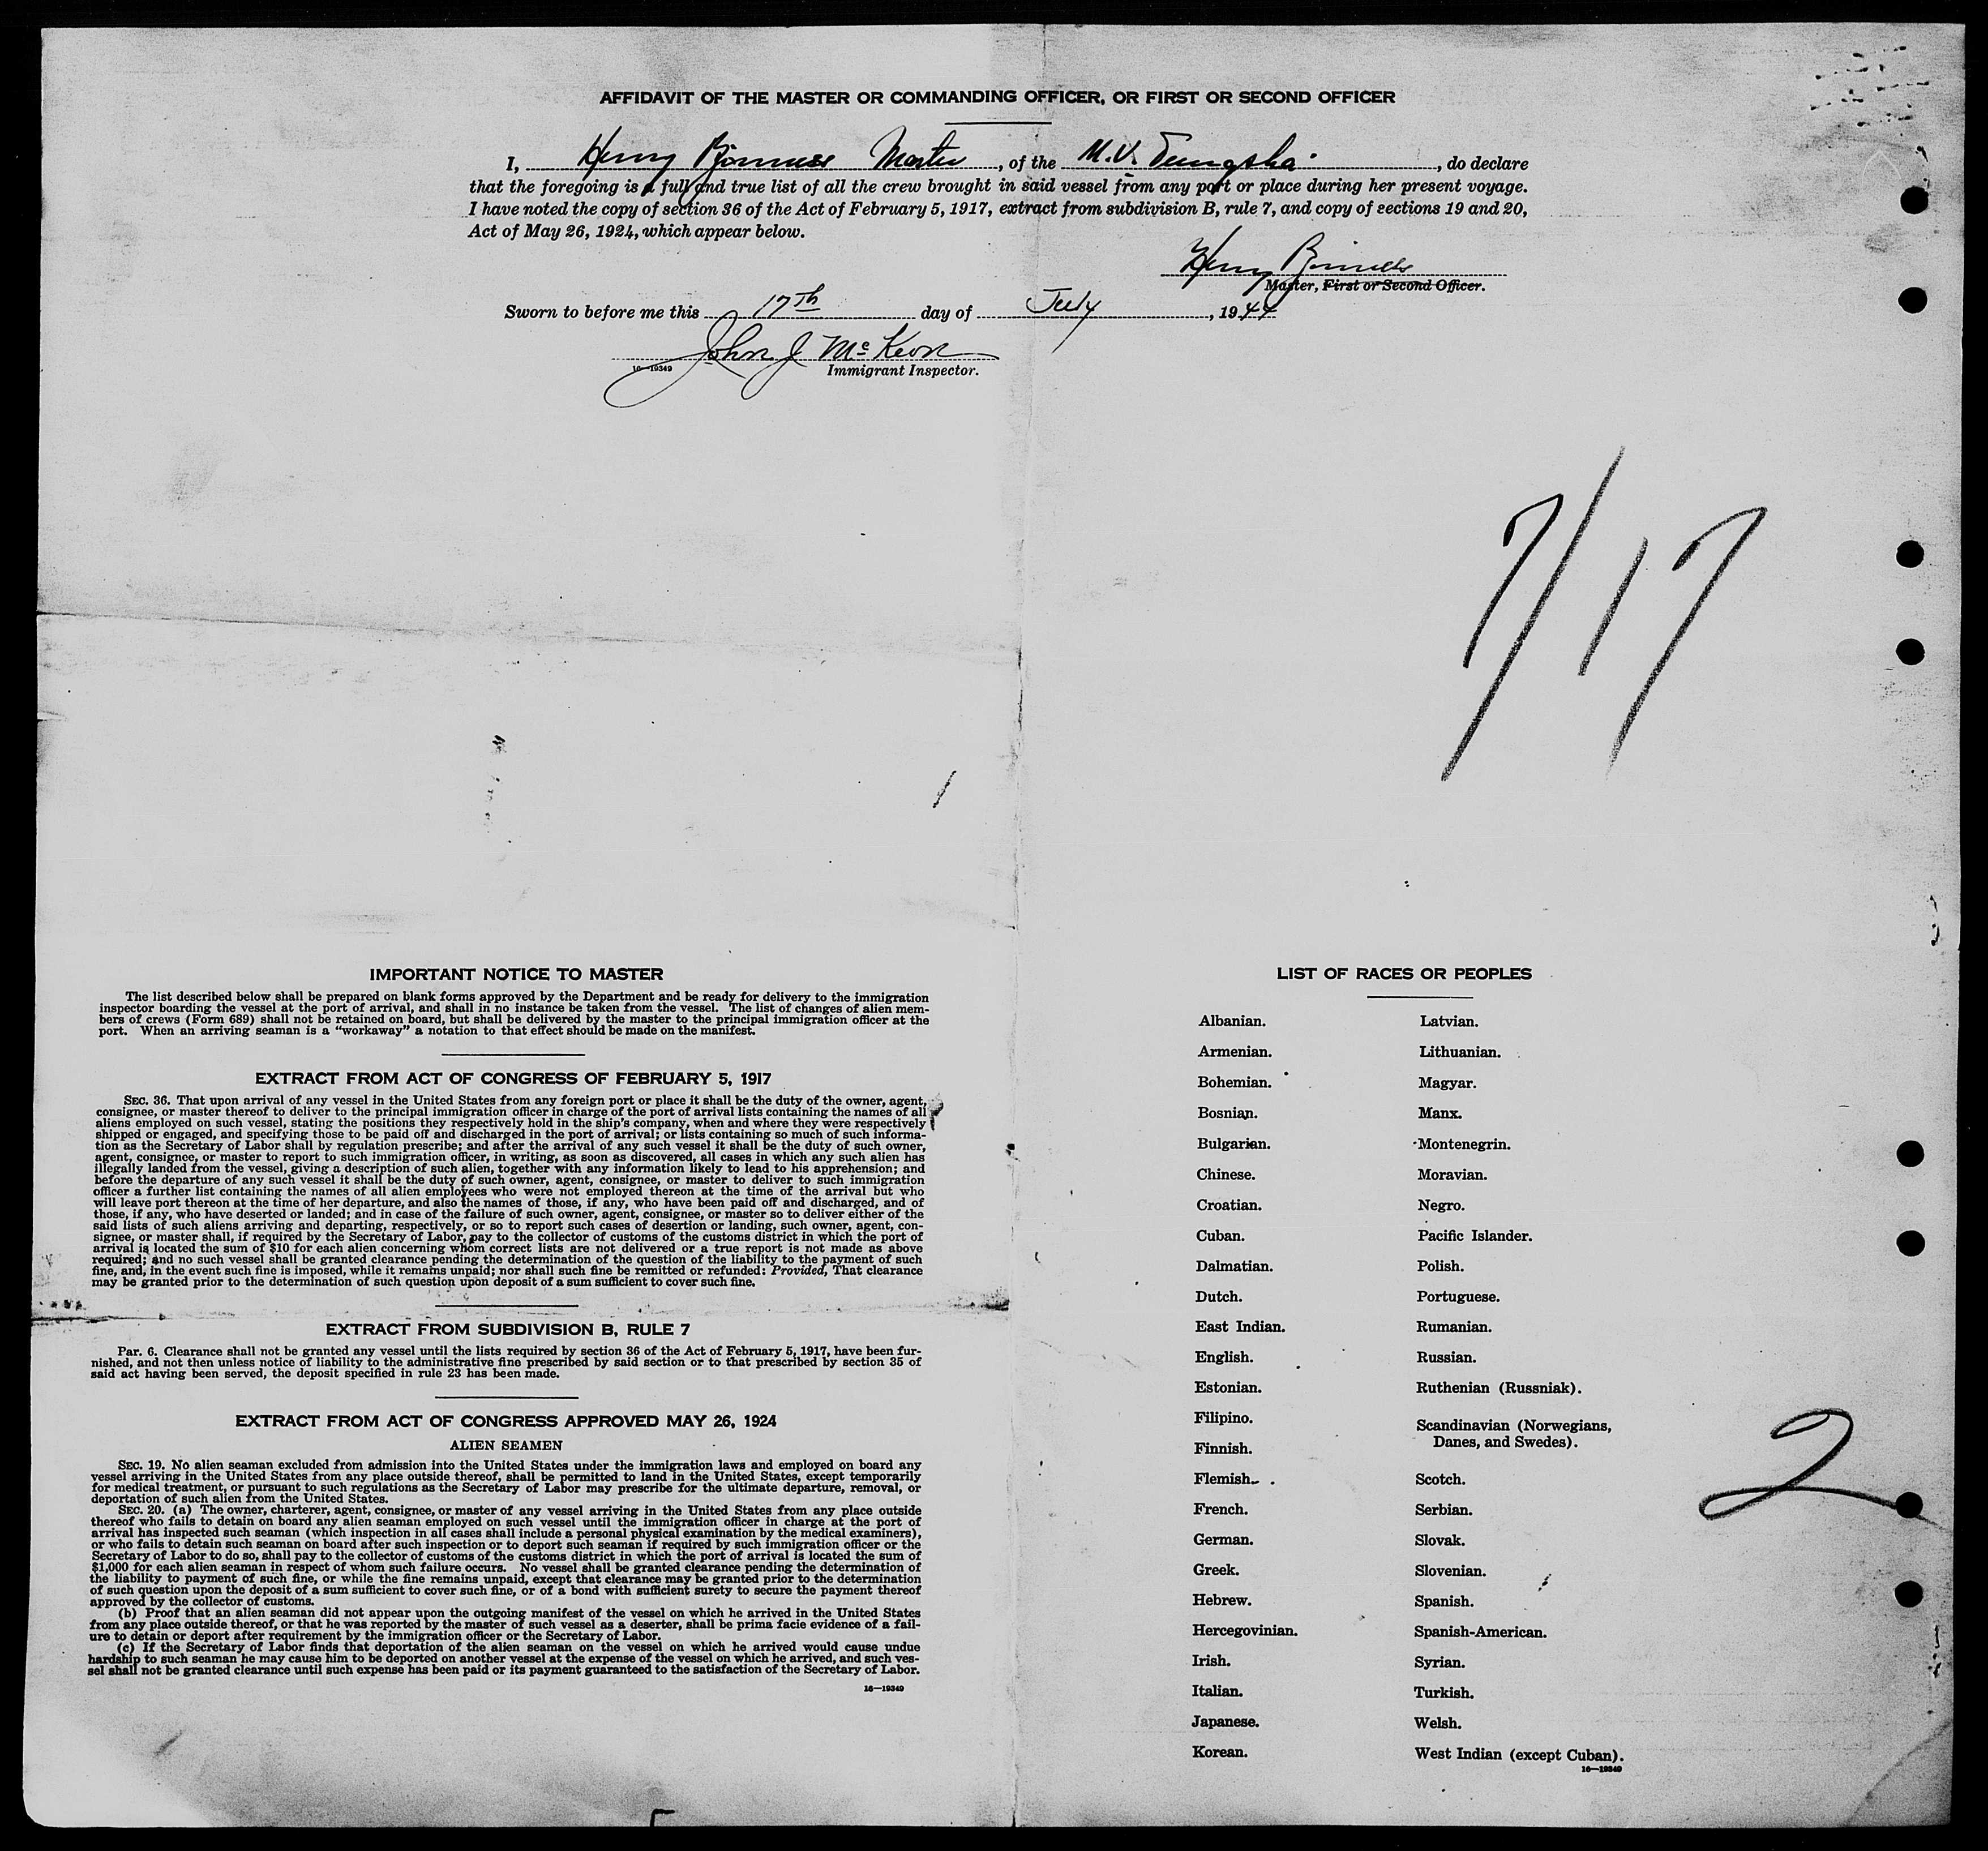 AFFIDAVIT OF THE MASTER OR COMMANDING OFFICER, OR FIRST OR SECOND OFFICER
I, Henry Master, of the M.V. Tungsha, do declare
that the foregoing is a full and true list of all the crew brought in said vessel from any port or place during her present voyage.
I have noted the copy of section 36 of the Act of February 5, 1917, extract from subdivision B, rule 7, and copy of sections 19 and 20,
Act of May 26, 1924, which appear below.
Henry
Master, First or Second Officer.
Sworn to before me this 17th day of July, 1944
John J McKeon
16—19349 Immigrant Inspector.
7/17
IMPORTANT NOTICE TO MASTER
The list described below shall be prepared on blank forms approved by the Department and be ready for delivery to the immigration
inspector boarding the vessel at the port of arrival, and shall in no instance be taken from the vessel. The list of changes of alien mem-
bers of crews (Form 689) shall not be retained on board, but shall be delivered by the master to the principal immigration officer at the
port. When an arriving seaman is a "workaway" a notation to that effect should be made on the manifest.
EXTRACT FROM ACT OF CONGRESS OF FEBRUARY 5, 1917
SEC. 36. That upon arrival of any vessel in the United States from any foreign port or place it shall be the duty of the owner, agent,
consignee, or master thereof to deliver to the principal immigration officer in charge of the port of arrival lists containing the names of all
aliens employed on such vessel, stating the positions they respectively hold in the ship's company, when and where they were respectively
shipped or engaged, and specifying those to be paid off and discharged in the port of arrival; or lists containing so much of such informa-
tion as the Secretary of Labor shall by regulation prescribe; and after the arrival of any such vessel it shall be the duty of such owner,
agent, consignee, or master to report to such immigration officer, in writing, as soon as discovered, all cases in which any such alien has
illegally landed from the vessel, giving a description of such alien, together with any information likely to lead to his apprehension; and
before the departure of any such vessel it shall be the duty of such owner, agent, consignee, or master to deliver to such immigration
officer a further list containing the names of all alien employees who were not employed thereon at the time of the arrival but who
will leave port thereon at the time of her departure, and also the names of those, if any, who have been paid off and discharged, and of
those, if any, who have deserted or landed; and in case of the failure of such owner, agent, consignee, or master so to deliver either of the
said lists of such aliens arriving and departing, respectively, or so to report such cases of desertion or landing, such owner, agent, con-
signee, or master shall, if required by the Secretary of Labor, pay to the collector of customs of the customs district in which the port of
arrival is located the sum of $10 for each alien concerning whom correct lists are not delivered or a true report is not made as above
required; and no such vessel shall be granted clearance pending the determination of the question of the liability to the payment of such
fine, and, in the event such fine is imposed, while it remains unpaid; nor shall such fine be remitted or refunded: Provided, That clearance
may be granted prior to the determination of such question upon deposit of a sum sufficient to cover such fine.
EXTRACT FROM SUBDIVISION B, RULE 7
Par. 6. Clearance shall not be granted any vessel until the lists required by section 36 of the Act of February 5, 1917, have been fur-
nished, and not then unless notice of liability to the administrative fine prescribed by said section or to that prescribed by section 35 of
said act having been served, the deposit specified in rule 23 has been made.
EXTRACT FROM ACT OF CONGRESS APPROVED MAY 26, 1924
ALIEN SEAMEN
SEC. 19. No alien seaman excluded from admission into the United States under the immigration laws and employed on board any
vessel arriving in the United States from any place outside thereof, shall be permitted to land in the United States, except temporarily
for medical treatment, or pursuant to such regulations as the Secretary of Labor may prescribe for the ultimate departure, removal, or
deportation of such alien from the United States.
SEC. 20. (a) The owner, charterer, agent, consignee, or master of any vessel arriving in the United States from any place outside
thereof who fails to detain on board any alien seaman employed on such vessel until the immigration officer in charge at the port of
arrival has inspected such seaman (which inspection in all cases shall include a personal physical examination by the medical examiners),
or who fails to detain such seaman on board after such inspection or to deport such seaman if required by such immigration officer or the
Secretary of Labor to do so, shall pay to the collector of customs of the customs district in which the port of arrival is located the sum of
$1,000 for each alien seaman in respect of whom such failure occurs. No vessel shall be granted clearance pending the determination of
the liability to payment of such fine, or while the fine remains unpaid, except that clearance may be granted prior to the determination
of such question upon the deposit of a sum sufficient to cover such fine, or of a bond with sufficient surety to secure the payment thereof
approved by the collector of customs.
(b) Proof that an alien seaman did not appear upon the outgoing manifest of the vessel on which he arrived in the United States
from any place outside thereof, or that he was reported by the master of such vessel as a deserter, shall be prima facie evidence of a fail-
ure to detain or deport after requirement by the immigration officer or the Secretary of Labor.
(c) If the Secretary of Labor finds that deportation of the alien seaman on the vessel on which he arrived would cause undue
hardship to such seaman he may cause him to be deported on another vessel at the expense of the vessel on which he arrived, and such ves-
sel shall not be granted clearance until such expense has been paid or its payment guaranteed to the satisfaction of the Secretary of Labor.
16—19349
LIST OF RACES OR PEOPLES
Albanian.
Armenian.
Bohemian.
Bosnian.
Bulgarian.
Chinese.
Croatian.
Cuban.
Dalmatian.
Dutch.
East Indian.
English.
Estonian.
Filipino.
Finnish.
Flemish.
French.
German.
Greek.
Hebrew.
Hercegovinian.
Irish.
Italian.
Japanese.
Korean.
Latvian.
Lithuanian.
Magyar.
Manx.
Montenegrin.
Moravian.
Negro.
Pacific Islander.
Polish.
Portuguese.
Rumanian.
Russian.
Ruthenian (Russniak).
Scandinavian (Norwegians,
Danes, and Swedes).
Scotch.
Serbian.
Slovak.
Slovenian.
Spanish.
Spanish-American.
Syrian.
Turkish.
Welsh.
West Indian (except Cuban).
16—19349
2